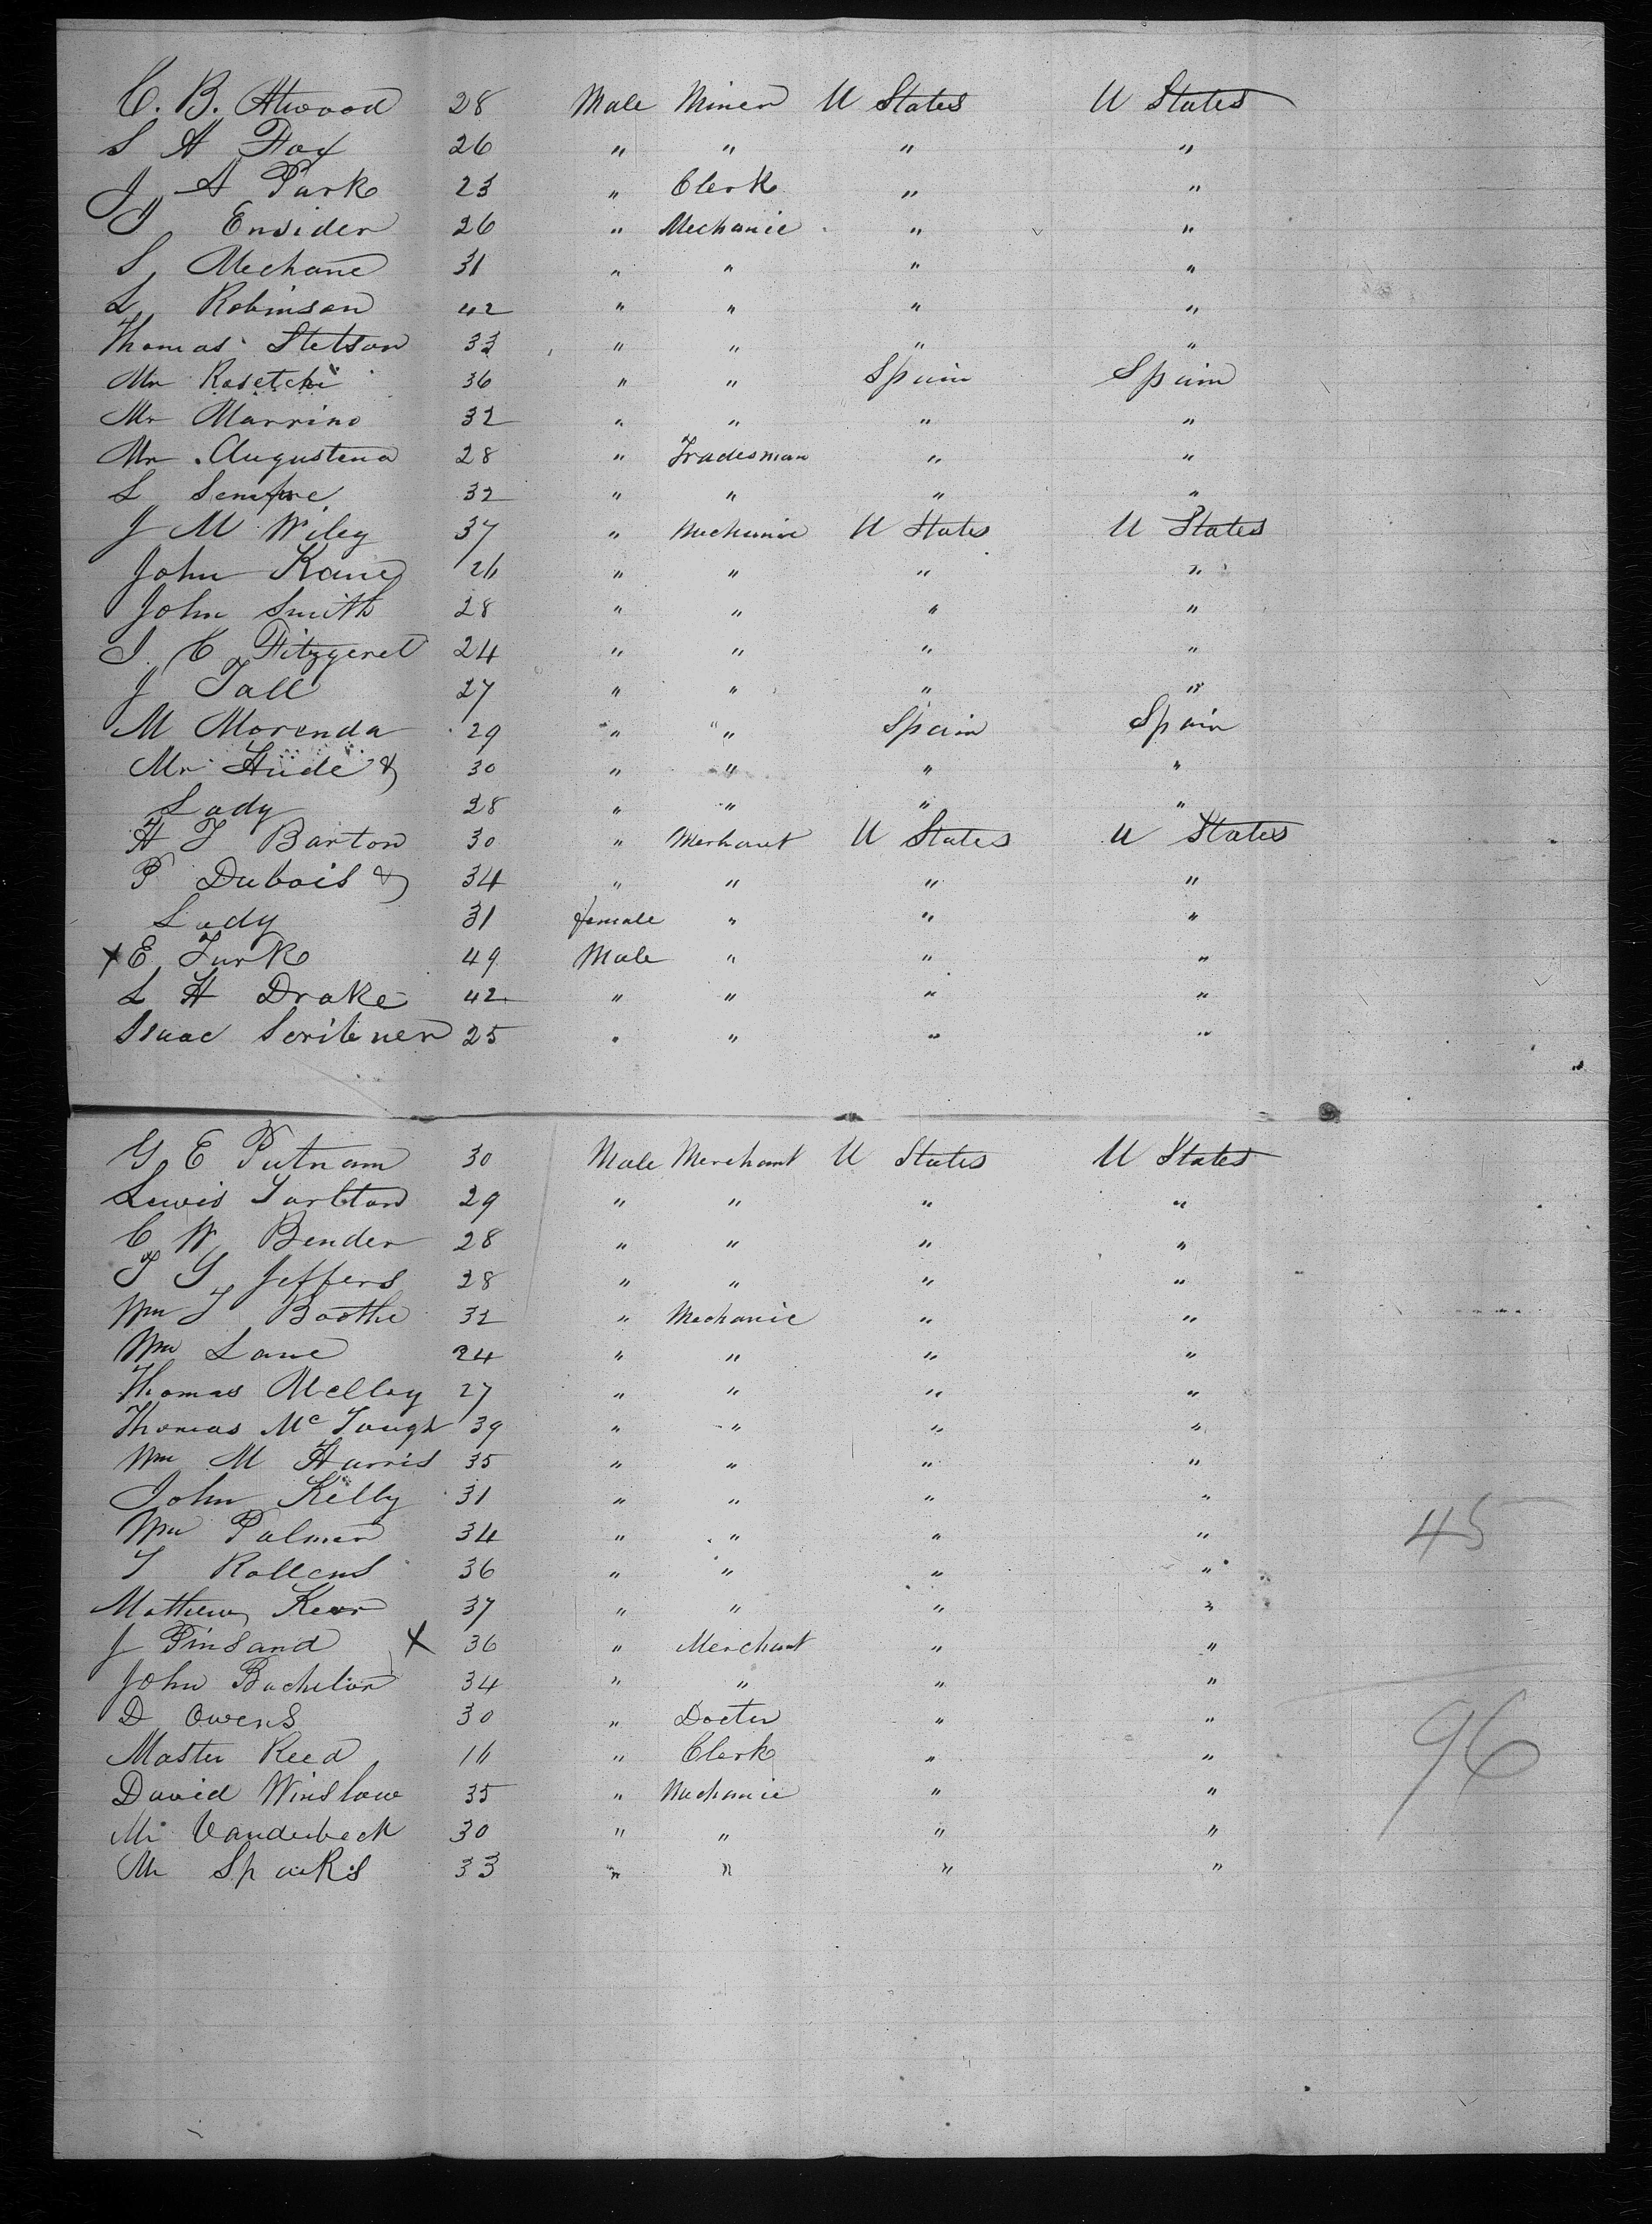 C. B. Atwood 28 Male Miner U States U States
S A Fox 26 " " " "
J A Park 23 " Clerk " "
J Ensider 26 " Mechanic " "
S Mechane 31 " " " "
L Robinson 42 " " " "
Thomas Stetson 33 " " " "
Mr Rosetchi 36 " " Spain Spain
Mr Marrino 32 " " " "
Mr Augustena 28 " Tradesman " "
L 32 " " " "
J M Wiley 37 " Mechanic U States U States
John Kane 26 " " " "
John Smith 28 " " " "
J. C Fitzgerel 24 " " " "
J Tall 27 " " " "
M Morenda 29 " " Spain Spain
Mr Hude & 30 " " " "
Lady 28 " " " "
H T Barton 30 " Merhant U States U States
P Dubois & 34 " " " "
Lady 31 female " " "
x E Turk 49 Male " " "
L H Drake 42 " " " "
Isaac Scribener 25 " " " "
G E Putnam 30 Male Merchant U States U States
Lewis Tarlton 29 " " " "
C W Bender 28 " " " "
T G Jeffers 28 " " " "
Wm T Boothe 32 " Mechanic " "
Wm Lane 24 " " " "
Thomas Mellay 27 " " " "
Thomas Mc Tough 39 " " " "
Wm M Harris 35 " " " "
John Kelly 31 " " " "
Wm Palmer 34 " " " " 45
T Rollens 36 " " " "
Mathew Kerr 37 " " " "
J Pinsand x 36 " Merchant " "
John Bachelior 34 " " " "
D Owens 30 " Docter " "
Master Reed 16 " Clerk " " 96
David Winslow 35 " Mechanic " "
Mr Vanderbeck 30 " " " "
Mr Sparks 33 " " " "